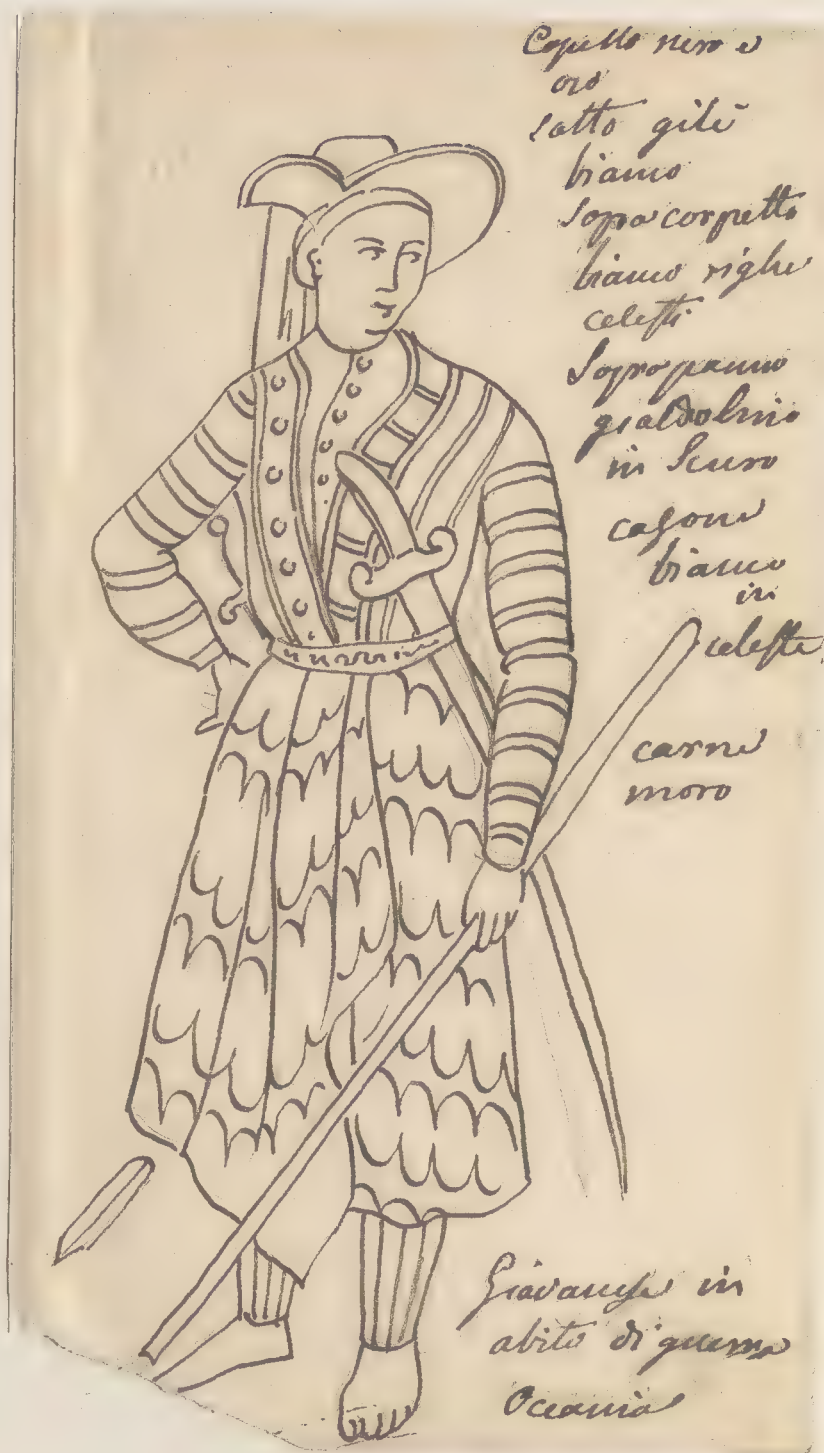 Capello nero e
oro
sotto gilè
bianco
sopra corpetto
bianco righe
celesti
Sopra panno
gialdolino
in scuro
calzone
bianco
in
celeste
carne
moro
Giavanese in
abito di guerra
Oceania